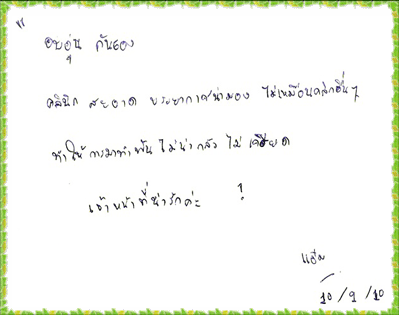 "
อบอุ่น กันเอง
คลินิก สะอาด บรรยากาศน่ามอง ไม่เหมือนคลินิกอื่นๆ
ทำให้ การมาทำฟัน ไม่น่ากลัว ไม่ เครียด
เจ้าหน้าที่น่ารักค่ะ !
แอ๊ม
20/9/10